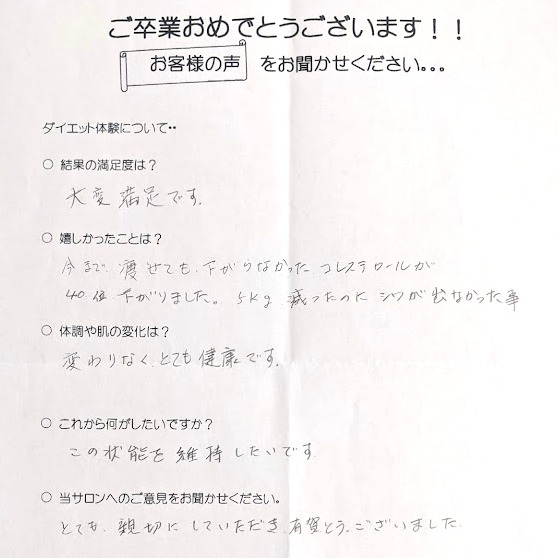 ご卒業おめでとうございます！！
お客様の声 をお聞かせください。。。
ダイエット体験について・・
○ 結果の満足度は？
大変満足です。
○ 嬉しかったことは？
今まで、痩せても、下がらなかったコレステロールが
40位下がりました。5kg減ったのにシワが出なかった事
○ 体調や肌の変化は？
変わりなく、とても健康です。
○ これから何がしたいですか？
この状態を維持したいです
○ 当サロンへのご意見をお聞かせください。
とても、親切にしていただき、有賀とうございました。